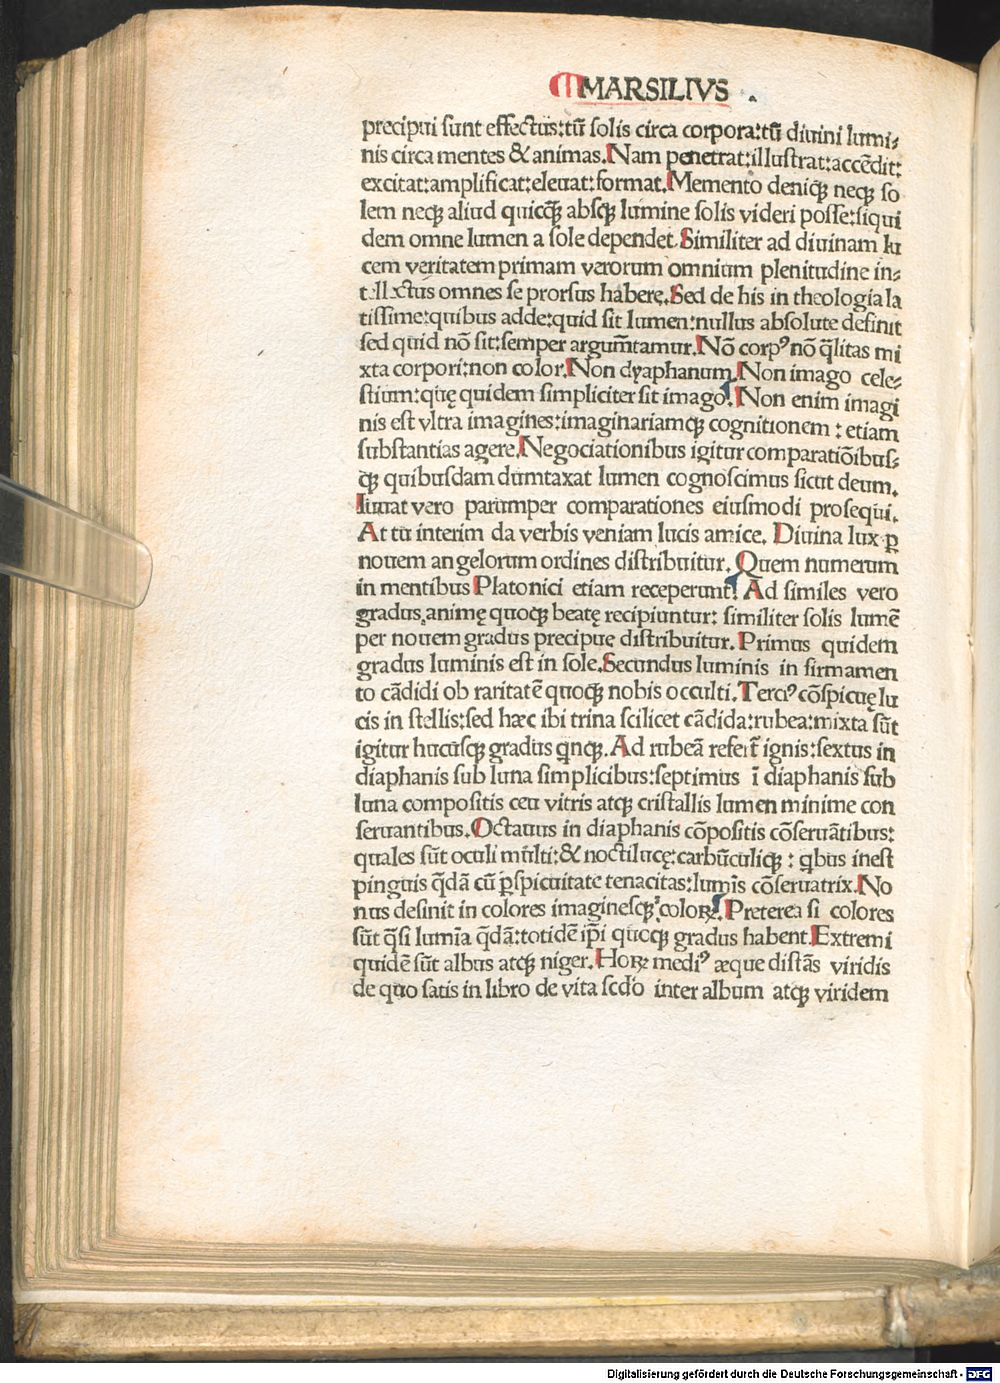 MARSILIVS .
precipui sunt effectus:tū solis circa corpora:tū diuini lumi⸗
nis circa mentes & animas.Nam penetrat:illustrat:accēdit:
excitat:amplificat:eleuat:format.Memento deniqꝫ neqꝫ so
lem neqꝫ aliud quicq̄ꝫ absqꝫ lumine solis videri posse:siqui
dem omne lumen a sole dependet.Similiter ad diuinam lu
cem veritatem primam verorum omnium plenitudine in⸗
tellectus omnes se prorsus habere.Sed de his in theologia la
tissime:quibus adde:quid sit lumen:nullus absolute definit
sed quid nō sit:semper argum̄tamur.Nō corpꝰ nō q̄litas mi
xta corpori:non color.Non dyaphanum.Non imago cele⸗
stium:quę quidem simpliciter sit imago.Non enim imagi
nis est vltra imagines:imaginariamqꝫ cognitionem : etiam
substantias agere.Negociationibus igitur comparatiōibus⸗
qꝫ quibusdam dumtaxat lumen cognoscimus sicut deum.
Iuuat vero parumper comparationes eiusmodi prosequi.
At tu interim da verbis veniam lucis amice. Diuina lux ꝑ
nouem angelorum ordines distribuitur. Quem numerum
in mentibus Platonici etiam receperunt. Ad similes vero
gradus animę quoqꝫ beatę recipiuntur: similiter solis lumē
per nouem gradus precipue distribuitur. Primus quidem
gradus luminis est in sole.Secundus luminis in firmamen
to cādidi ob raritatē quoqꝫ nobis occulti.Terciꝰ cōspicuę lu
cis in stellis:sed hæc ibi trina scilicet cādida:rubea:mixta sūt
igitur hucusqꝫ gradus q̇nqꝫ.Ad rubeā refert̄ ignis:sextus in
diaphanis sub luna simplicibus:septimus ī diaphanis sub
luna compositis ceu vitris atqꝫ cristallis lumen minime con
seruantibus.Octauus in diaphanis cōpositis cōseruātibus:
quales sūt oculi multi:& noctilucę:carbūculiqꝫ : q̇bus inest
pinguis q̄dā cū ꝑspicuitate tenacitas:lumīs cōseruatrix.No
nus desinit in colores imaginesqꝫ coloꝝ. Preterea si colores
sūt q̄si lumīa q̄dā:totidē ip̄i quoqꝫ gradus habent.Extremi
quidē sūt albus atqꝫ niger.Hoꝝ mediꝰ æque distās viridis
de quo satis in libro de vita scdo inter album atqꝫ viridem
Digitalisierung gefördert durch die Deutsche Forschungsgemeinschaft - DFG